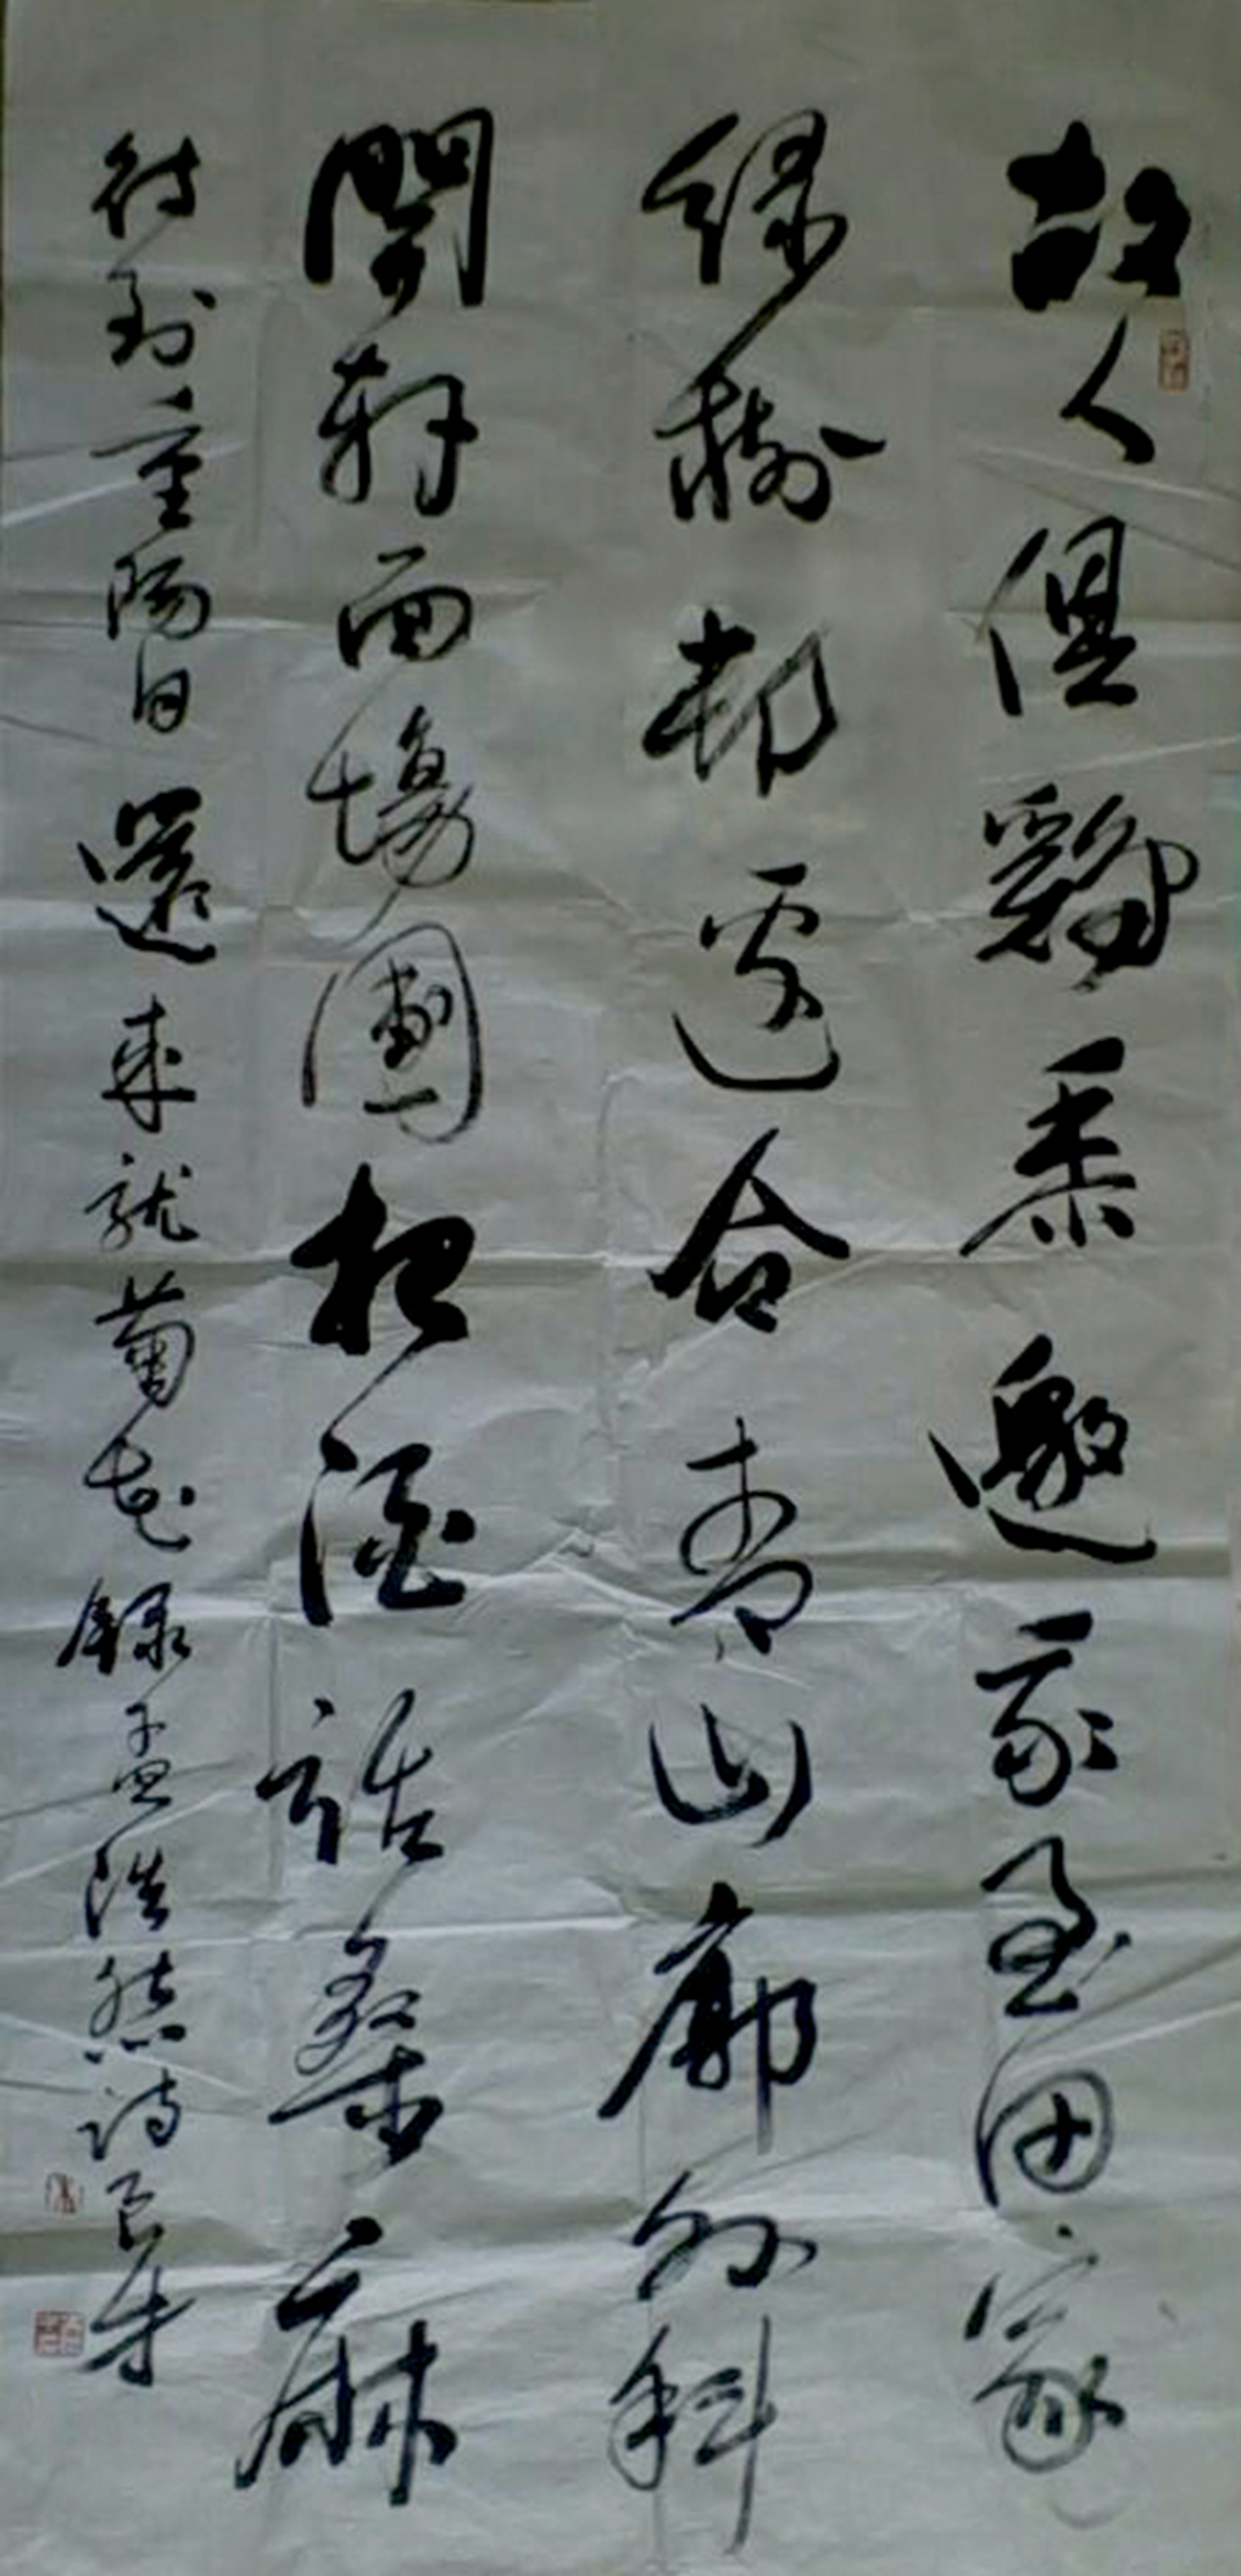 故人俱鷄黍邀我至田家
綠樹邨邊合青山廓外斜
開軒面場圃把酒話桑麻
待到重陽日還來就菊花錄孟浩然詩